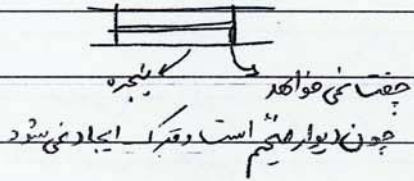 پنجره
چفت نمی خواهد
چون دیوار ضخیم است و ترک ایجاد نمی شود